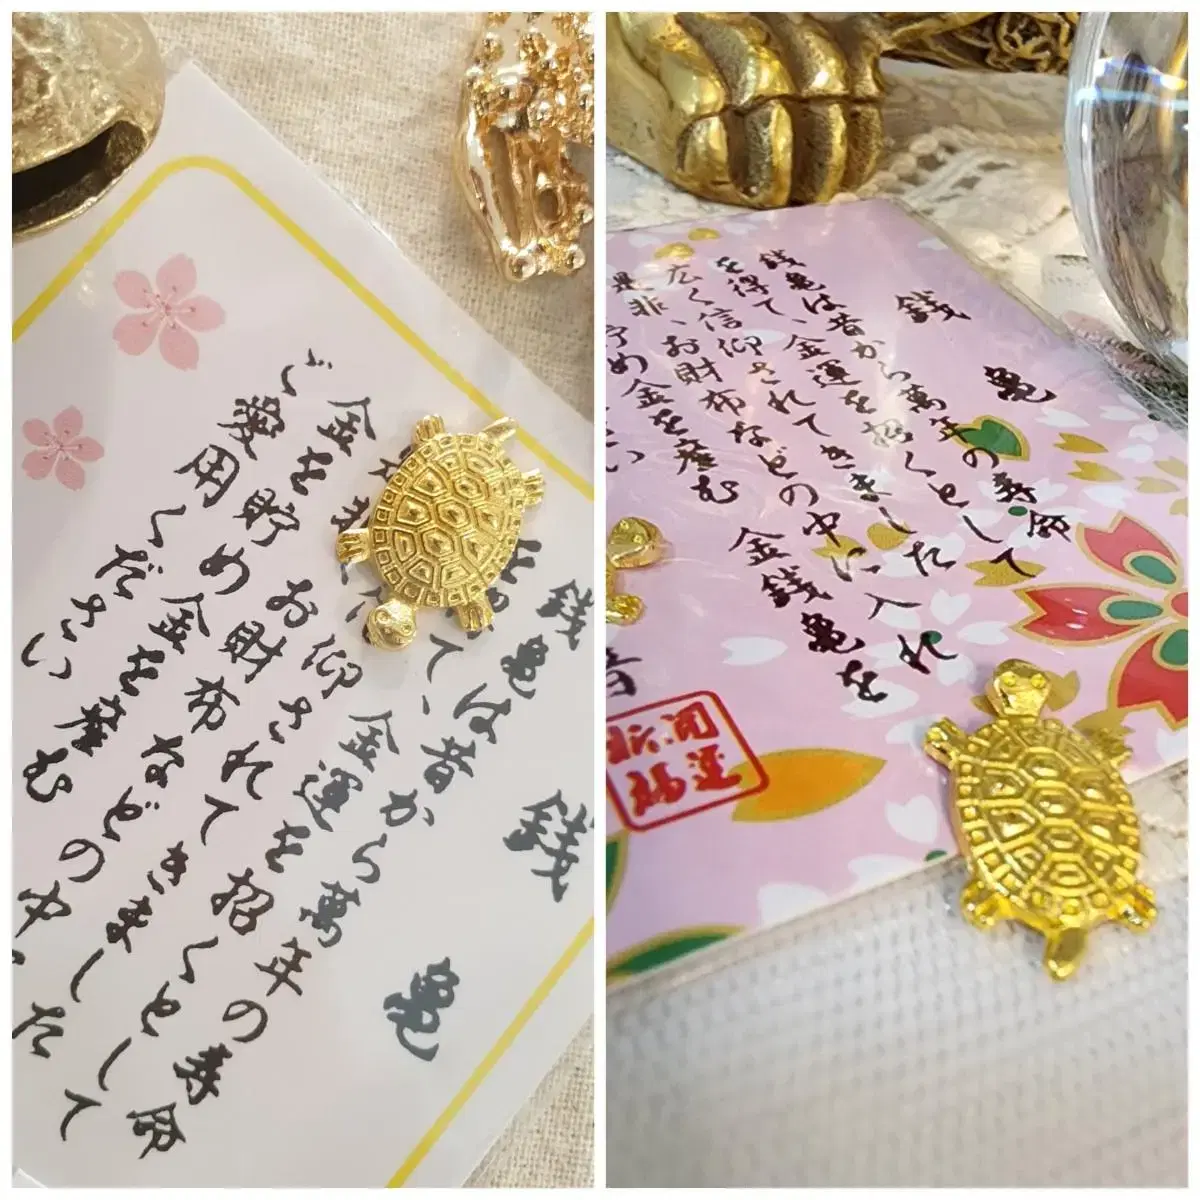 銭 亀
銭亀は昔から萬年の寿命
て、金運を招くとして
仰されてきました
お財布などの中
金を貯め金を産む
ご愛用ください
銭 亀
銭亀は昔から萬年の寿命
を得て、金運を招くとして
広く信仰されてきました
是非、お財布などの中に入れ
貯め金を産む 金銭亀を
い
開運
招福